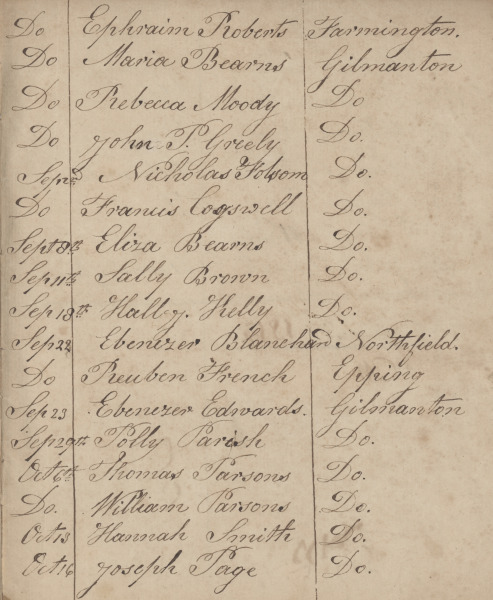 Do Ephraim Roberts Farmington.
Do Maria Bearns Gilmanton
Do Rebecca Moody Do
Do John P. Griely Do.
Sep 2d Nicholas Folsom Do.
Do Francis Cogswell Do.
Sept 8th Eliza Bearns Do.
Sep 11th Sally Brown Do.
Sep 18th Hall J. Kelly Do.
Sep 22 Ebenezer Blanchard Northfield.
Do Reuben French Epping
Sep 23 Ebenezer Edwards. Gilmanton
Sep 29th Polly Parish Do.
Oct 6th Thomas Parsons Do.
Do. William Parsons Do.
Oct 13 Hannah Smith Do.
Oct 16 Joseph Page Do.